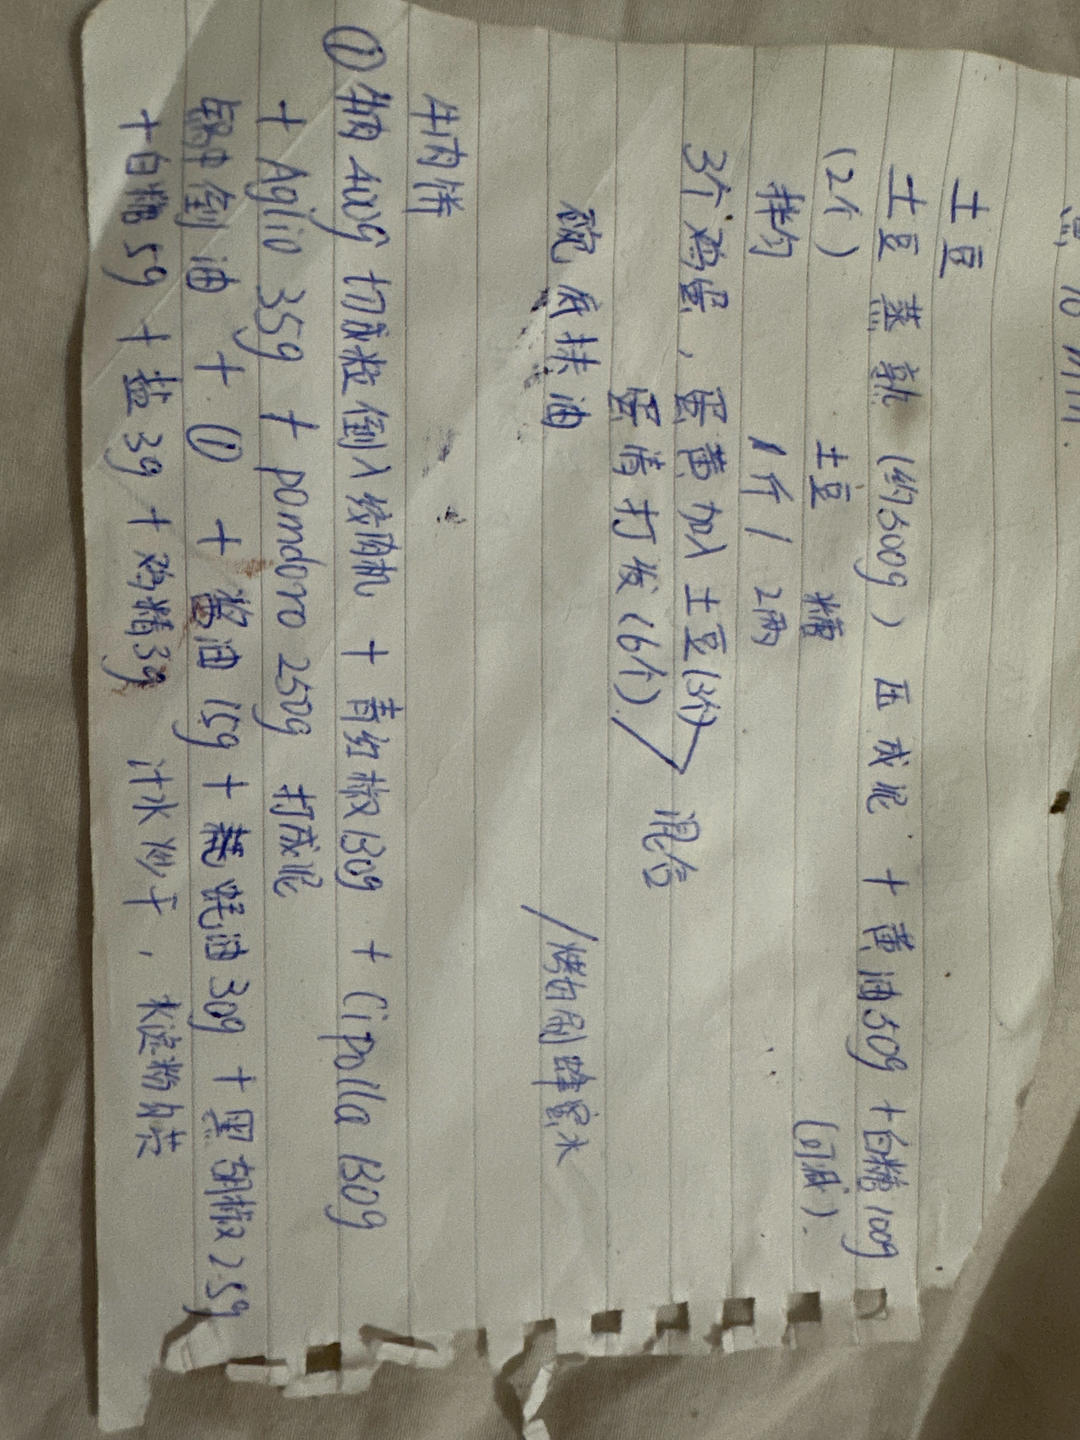 10 min.
土豆
土豆 蒸熟 (约500g) 压成泥 + 黄油50g +白糖100g
(2个) 土豆 糖 (可减).
拌匀 1斤 / 2两
3个鸡蛋, 蛋黄加入土豆(3个)
蛋清打发(6个). 混合
碗底抹油 /烤前刷蜂蜜水
牛肉饼
①牛肉400g 切成粒倒入绞肉机 + 青红椒130g + Cipolla 130g
+ Aglio 35g + pomdoro 250g 打成泥
锅中倒油 + ① + 酱油 15g + 蚝油30g + 黑胡椒25g
+白糖5g + 盐3g + 鸡精3g 汁水炒干, 水淀粉勾芡